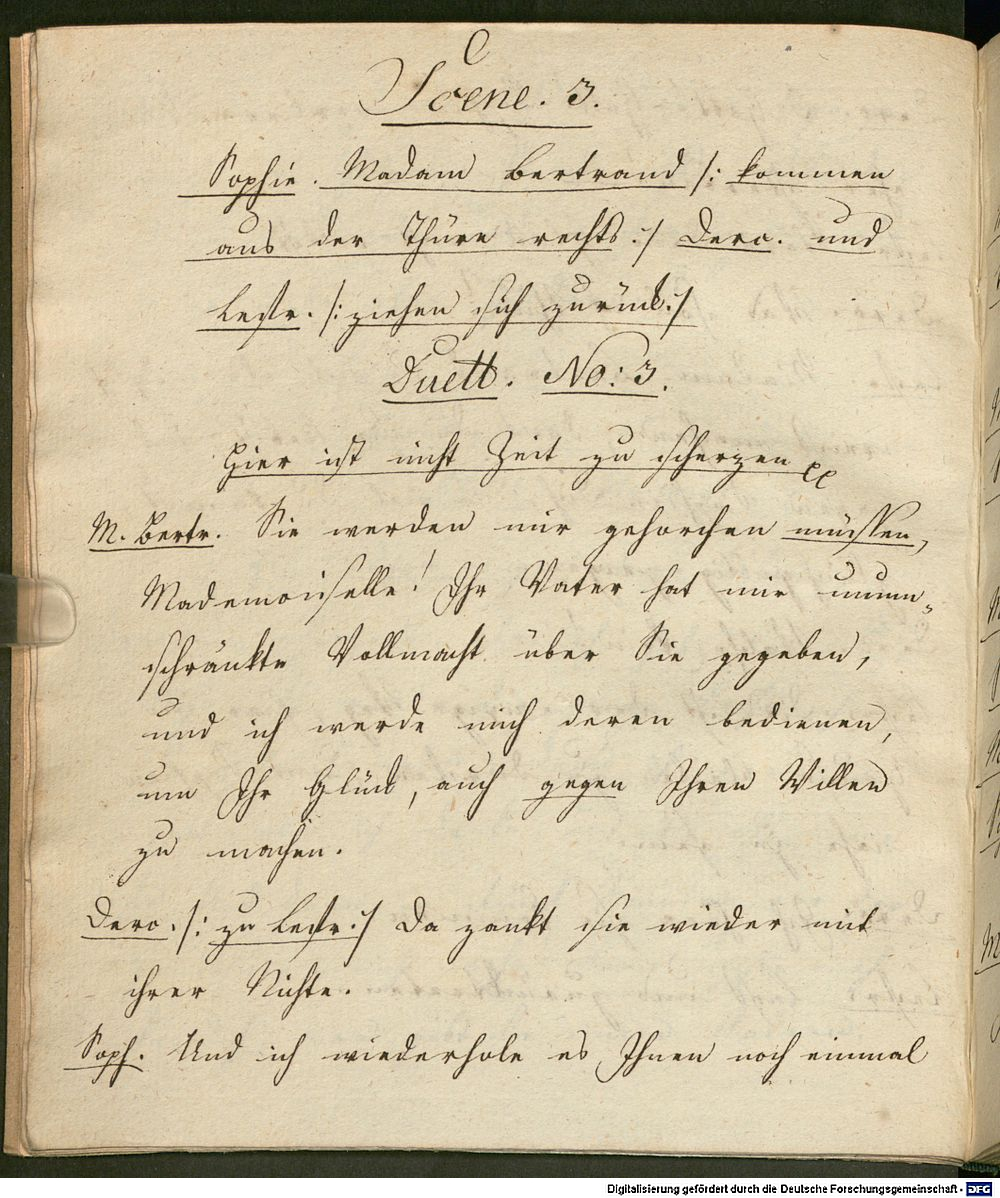 Scene. 3.
Sophie. Madam Bertrand /: kommen
aus der Thüre rechts :/ Derc. und
Lestr. /: ziehen sich zurück :/
Duett. No: 3.
Hier ist nicht Zeit zu scherzen
M. Bertr. Sie werden mir gehorchen müssen,
Mademoiselle! Ihr Vater hat mir unum=
schränkte Vollmacht über Sie gegeben,
und ich werde mich deren bedienen,
um Ihr Glück, auch gegen Ihren Willen
zu machen.
Derc. /: zu Lestr. :/ Da zankt sie wieder mit
ihrer Nichte.
Soph. Und ich wiederhole es Ihnen noch einmal
Digitalisierung gefördert durch die Deutsche Forschungsgemeinschaft - DFG